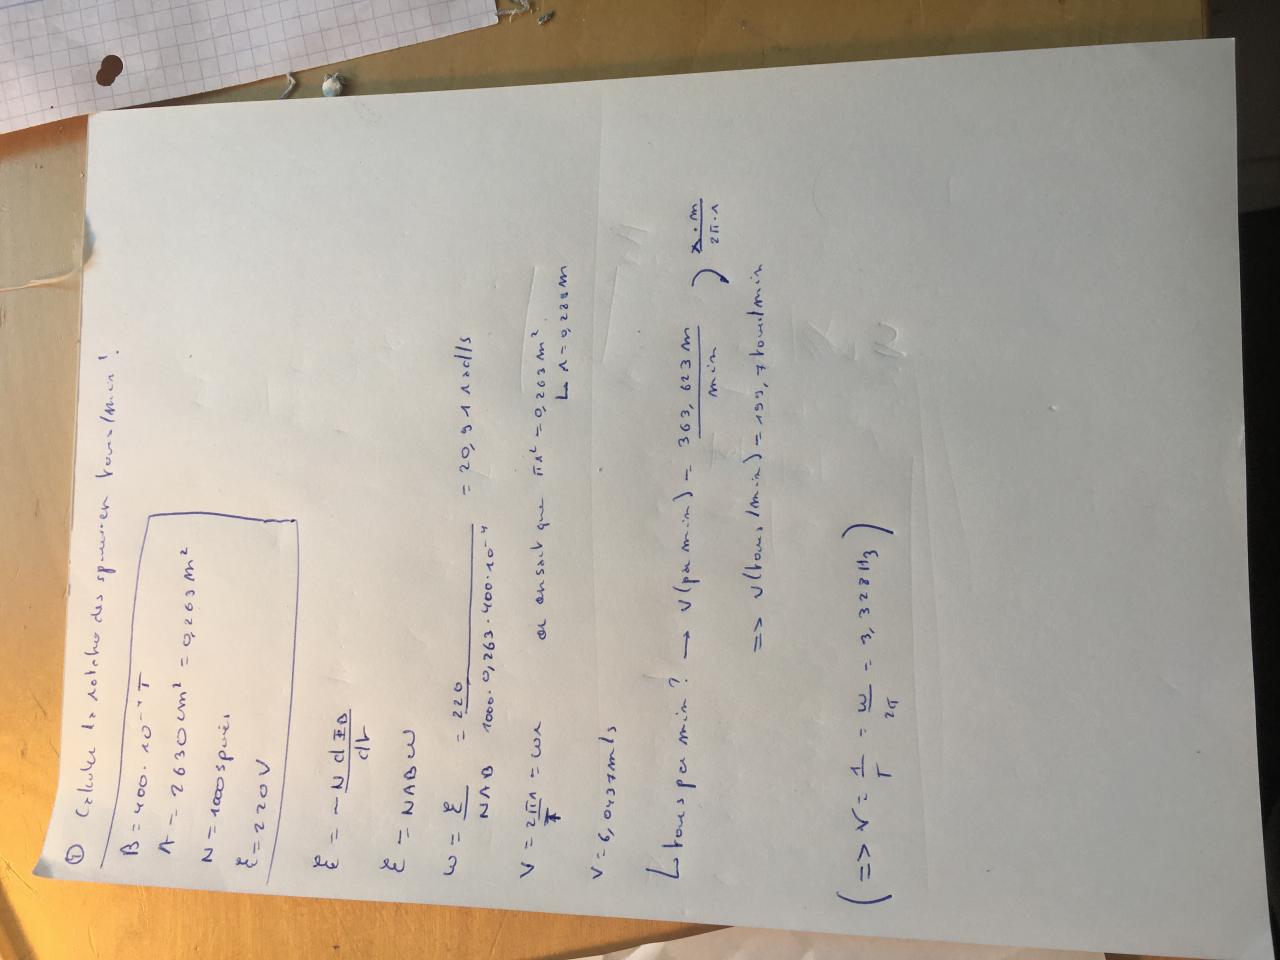 ① Calculer la rotation des spires en tours/min !
B = 400 · 10⁻⁴ T
A = 2630 cm² = 0,263 m²
N = 1000 spires
ℰ = 220 V
ℰ = - N dΦB/dt
ℰ = NAB ω
ω = ℰ/NAB = 220/1000 · 0,263 · 400 · 10⁻⁴ = 20,91 rad/s
V = 2πr/T = ωr or on sait que πr² = 0,263 m²
↳ r = 0,289 m
V = 6,0437 m/s
↳ tours par min ? → V (par min) = 363,623 m/min ) · m/2π · r
=> V (tours/min) = 199,7 tours/min
( => ν = 1/T = ω/2π = 3,328 Hz )